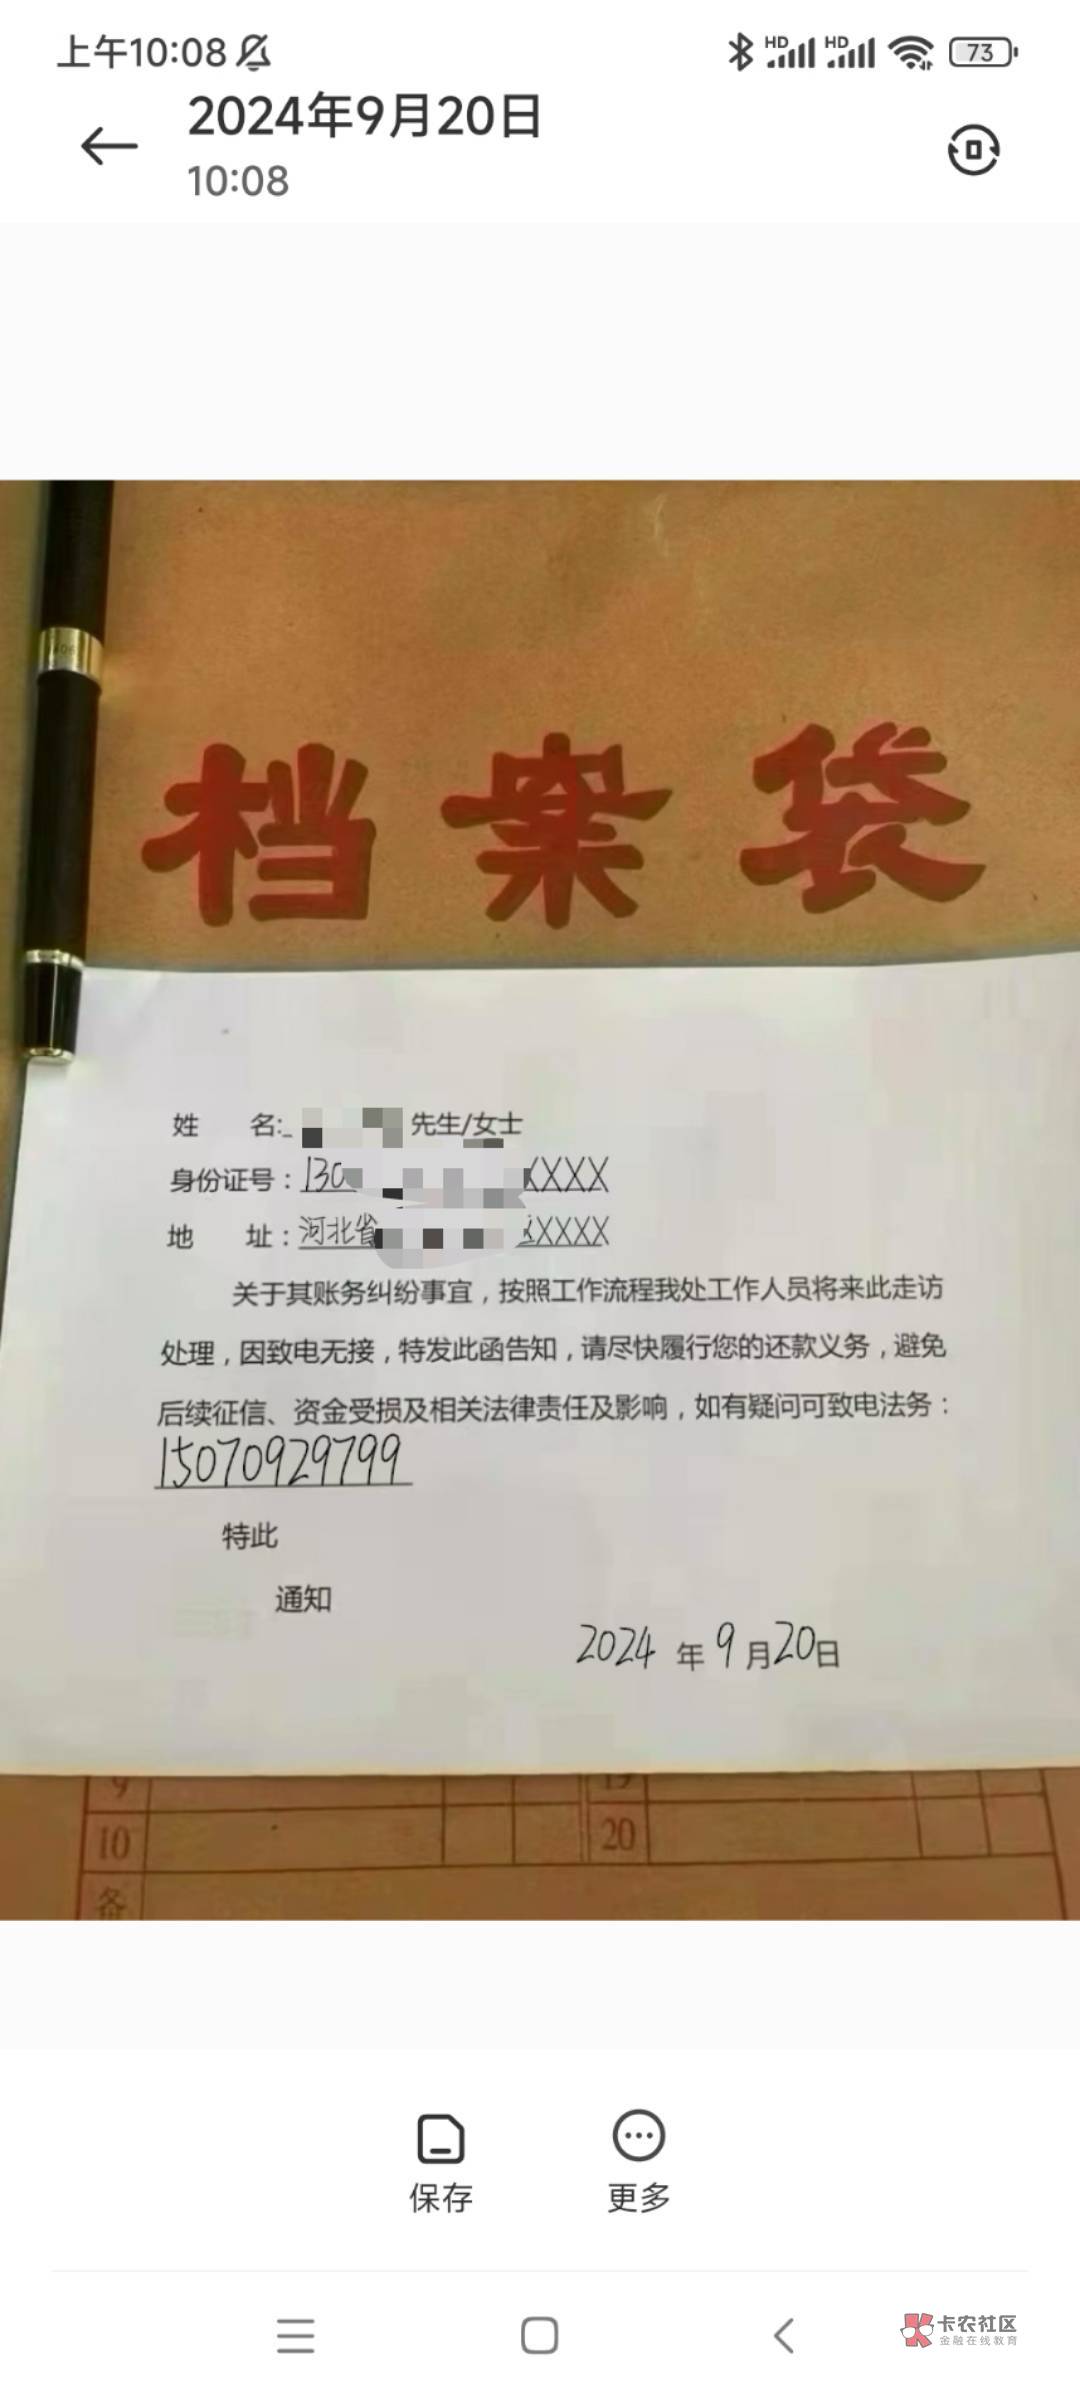 上午10:08
HD HD 73
2024年9月20日
10:08
档案袋
姓 名: 先生/女士
身份证号：130 XXXX
地 址：河北省 XXXX
关于其账务纠纷事宜，按照工作流程我处工作人员将来此走访
处理，因致电无接，特发此函告知，请尽快履行您的还款义务，避免
后续征信、资金受损及相关法律责任及影响，如有疑问可致电法务：
15070929799
特此
通知
2024 年 9 月 20 日
9 19
10 20
备
保存 更多
卡农社区
金融在线教育